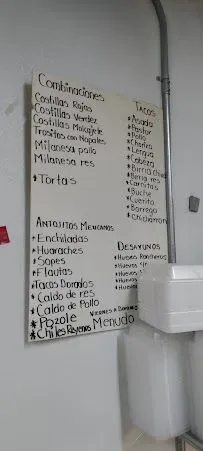 Combinaciones
Costillas Rojas
Costillas Verdez
Costillas Mokajete
Trositos con Nopales
Milanesa pollo
Milanesa res
*Tortas
TACOS
*Asada
*Pastor
*Pollo
*Choriza
*Lengua
*Cabeza
*Birria chiva
*Birria res
*Carnitas
*Buche
*Cuerito
*Borrega
*Chicharron
ANTOJITOS MEXICANOS
*Enchiladas
*Huaraches
*Sopes
*Flautas
*Tacos Dorados
*Caldo de res
*Caldo de Pollo
*Pozole
*Chiles Rellenos
DESAYUNOS
*Huevos Rancheros
*Huevos
*Huevos
*Huevos
Viernes a Domingo
Menudo